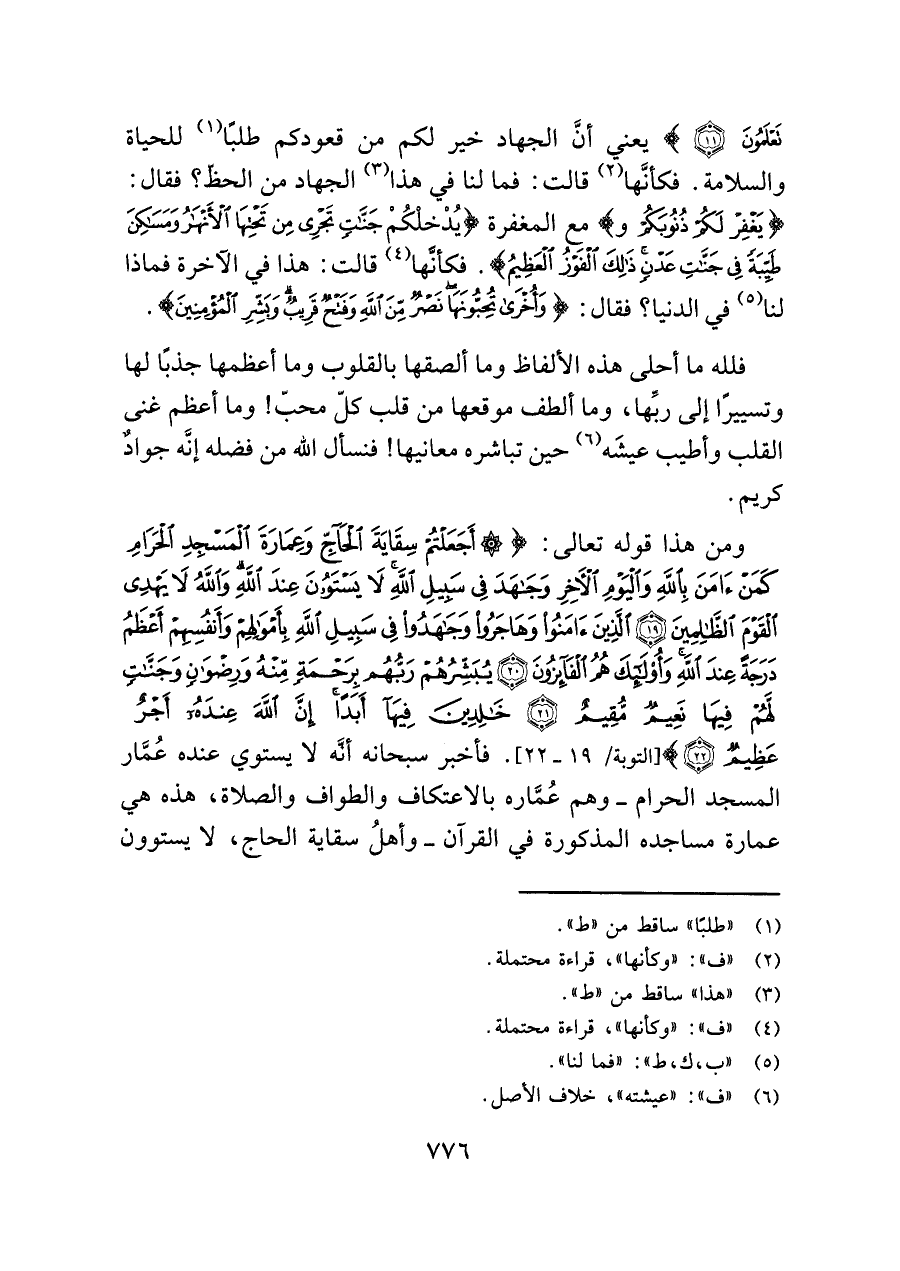 تَعْلَمُونَ ١١ ﴾ يعني أنَّ الجهاد خير لكم من قعودكم طلبًا(١) للحياة
والسلامة. فكأنَّها(٢) قالت: فما لنا في هذا(٣) الجهاد من الحظّ؟ فقال:
﴿ يَغْفِرْ لَكُمْ ذُنُوبَكُمْ و﴾ مع المغفرة ﴿يُدْخِلْكُمْ جَنَّاتٍ تَجْرِي مِن تَحْتِهَا الْأَنْهَارُ وَمَسَاكِنَ
طَيِّبَةً فِي جَنَّاتِ عَدْنٍ ۚ ذَٰلِكَ الْفَوْزُ الْعَظِيمُ﴾. فكأنَّها(٤) قالت: هذا في الآخرة فماذا
لنا(٥) في الدنيا؟ فقال: ﴿ وَأُخْرَىٰ تُحِبُّونَهَا ۖ نَصْرٌ مِّنَ اللَّهِ وَفَتْحٌ قَرِيبٌ ۗ وَبَشِّرِ الْمُؤْمِنِينَ﴾.
فلله ما أحلى هذه الألفاظ وما ألصقها بالقلوب وما أعظمها جذبًا لها
وتسييرًا إلى ربِّها، وما ألطف موقعها من قلب كلّ محبّ! وما أعظم غنى
القلب وأطيب عيشَه(٦) حين تباشره معانيها! فنسأل الله من فضله إنَّه جوادٌ
كريم.
ومن هذا قوله تعالى: ﴿ ۞ أَجَعَلْتُمْ سِقَايَةَ الْحَاجِّ وَعِمَارَةَ الْمَسْجِدِ الْحَرَامِ
كَمَنْ ءَامَنَ بِاللَّهِ وَالْيَوْمِ الْآخِرِ وَجَاهَدَ فِي سَبِيلِ اللَّهِ ۚ لَا يَسْتَوُونَ عِندَ اللَّهِ ۗ وَاللَّهُ لَا يَهْدِي
الْقَوْمَ الظَّالِمِينَ ١٩ الَّذِينَ ءَامَنُوا وَهَاجَرُوا وَجَاهَدُوا فِي سَبِيلِ اللَّهِ بِأَمْوَالِهِمْ وَأَنفُسِهِمْ أَعْظَمُ
دَرَجَةً عِندَ اللَّهِ ۚ وَأُولَٰئِكَ هُمُ الْفَائِزُونَ ٢٠ يُبَشِّرُهُمْ رَبُّهُم بِرَحْمَةٍ مِّنْهُ وَرِضْوَانٍ وَجَنَّاتٍ
لَّهُمْ فِيهَا نَعِيمٌ مُّقِيمٌ ٢١ خَالِدِينَ فِيهَا أَبَدًا ۚ إِنَّ اللَّهَ عِندَهُ أَجْرٌ
عَظِيمٌ ٢٢ ﴾[التوبة/ ١٩ ـ ٢٢]. فأخبر سبحانه أنَّه لا يستوي عنده عُمَّار
المسجد الحرام ـ وهم عُمَّاره بالاعتكاف والطواف والصلاة، هذه هي
عمارة مساجده المذكورة في القرآن ـ وأهلُ سقاية الحاج، لا يستوون
(١) «طلبًا» ساقط من «ط».
(٢) «ف»: «وكأنها»، قراءة محتملة.
(٣) «هذا» ساقط من «ط».
(٤) «ف»: «وكأنها»، قراءة محتملة.
(٥) «ب،ك،ط»: «فما لنا».
(٦) «ف»: «عيشته»، خلاف الأصل.
٧٧٦